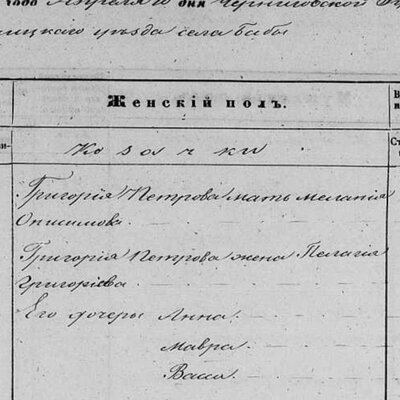 года Апреля 10 дня Черниговской Гу
ницкаго уѣзда села Бабы
Женскій полъ.
Козачки
Григорія Петрова мать Меланія
Онисимова.
Григорія Петрова жена Пелагія
Григоріева
Его дочеры Анна.
Мавра.
Васса.